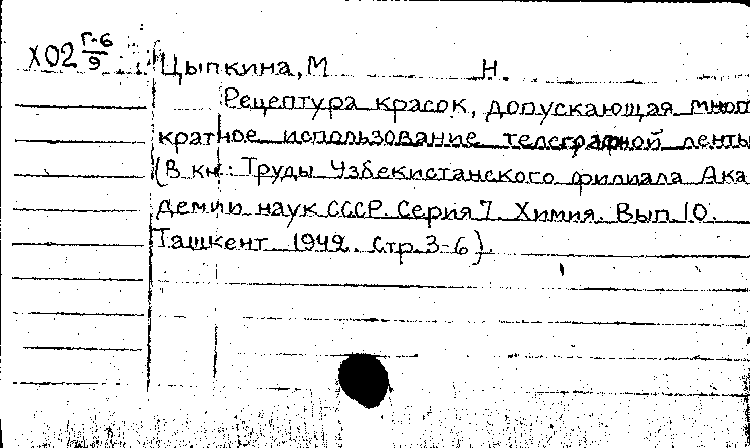 Х02 Г-6/9
Цыпкина, М Н.
Рецептура красок, допускающая мног
кратное использование телеграфной ленты
(В кн: Труды Узбекистанского филиала Ака
демии наук СССР. Серия 7. Химия. Вып. 10.
Ташкент 1942. Стр. 3-6).